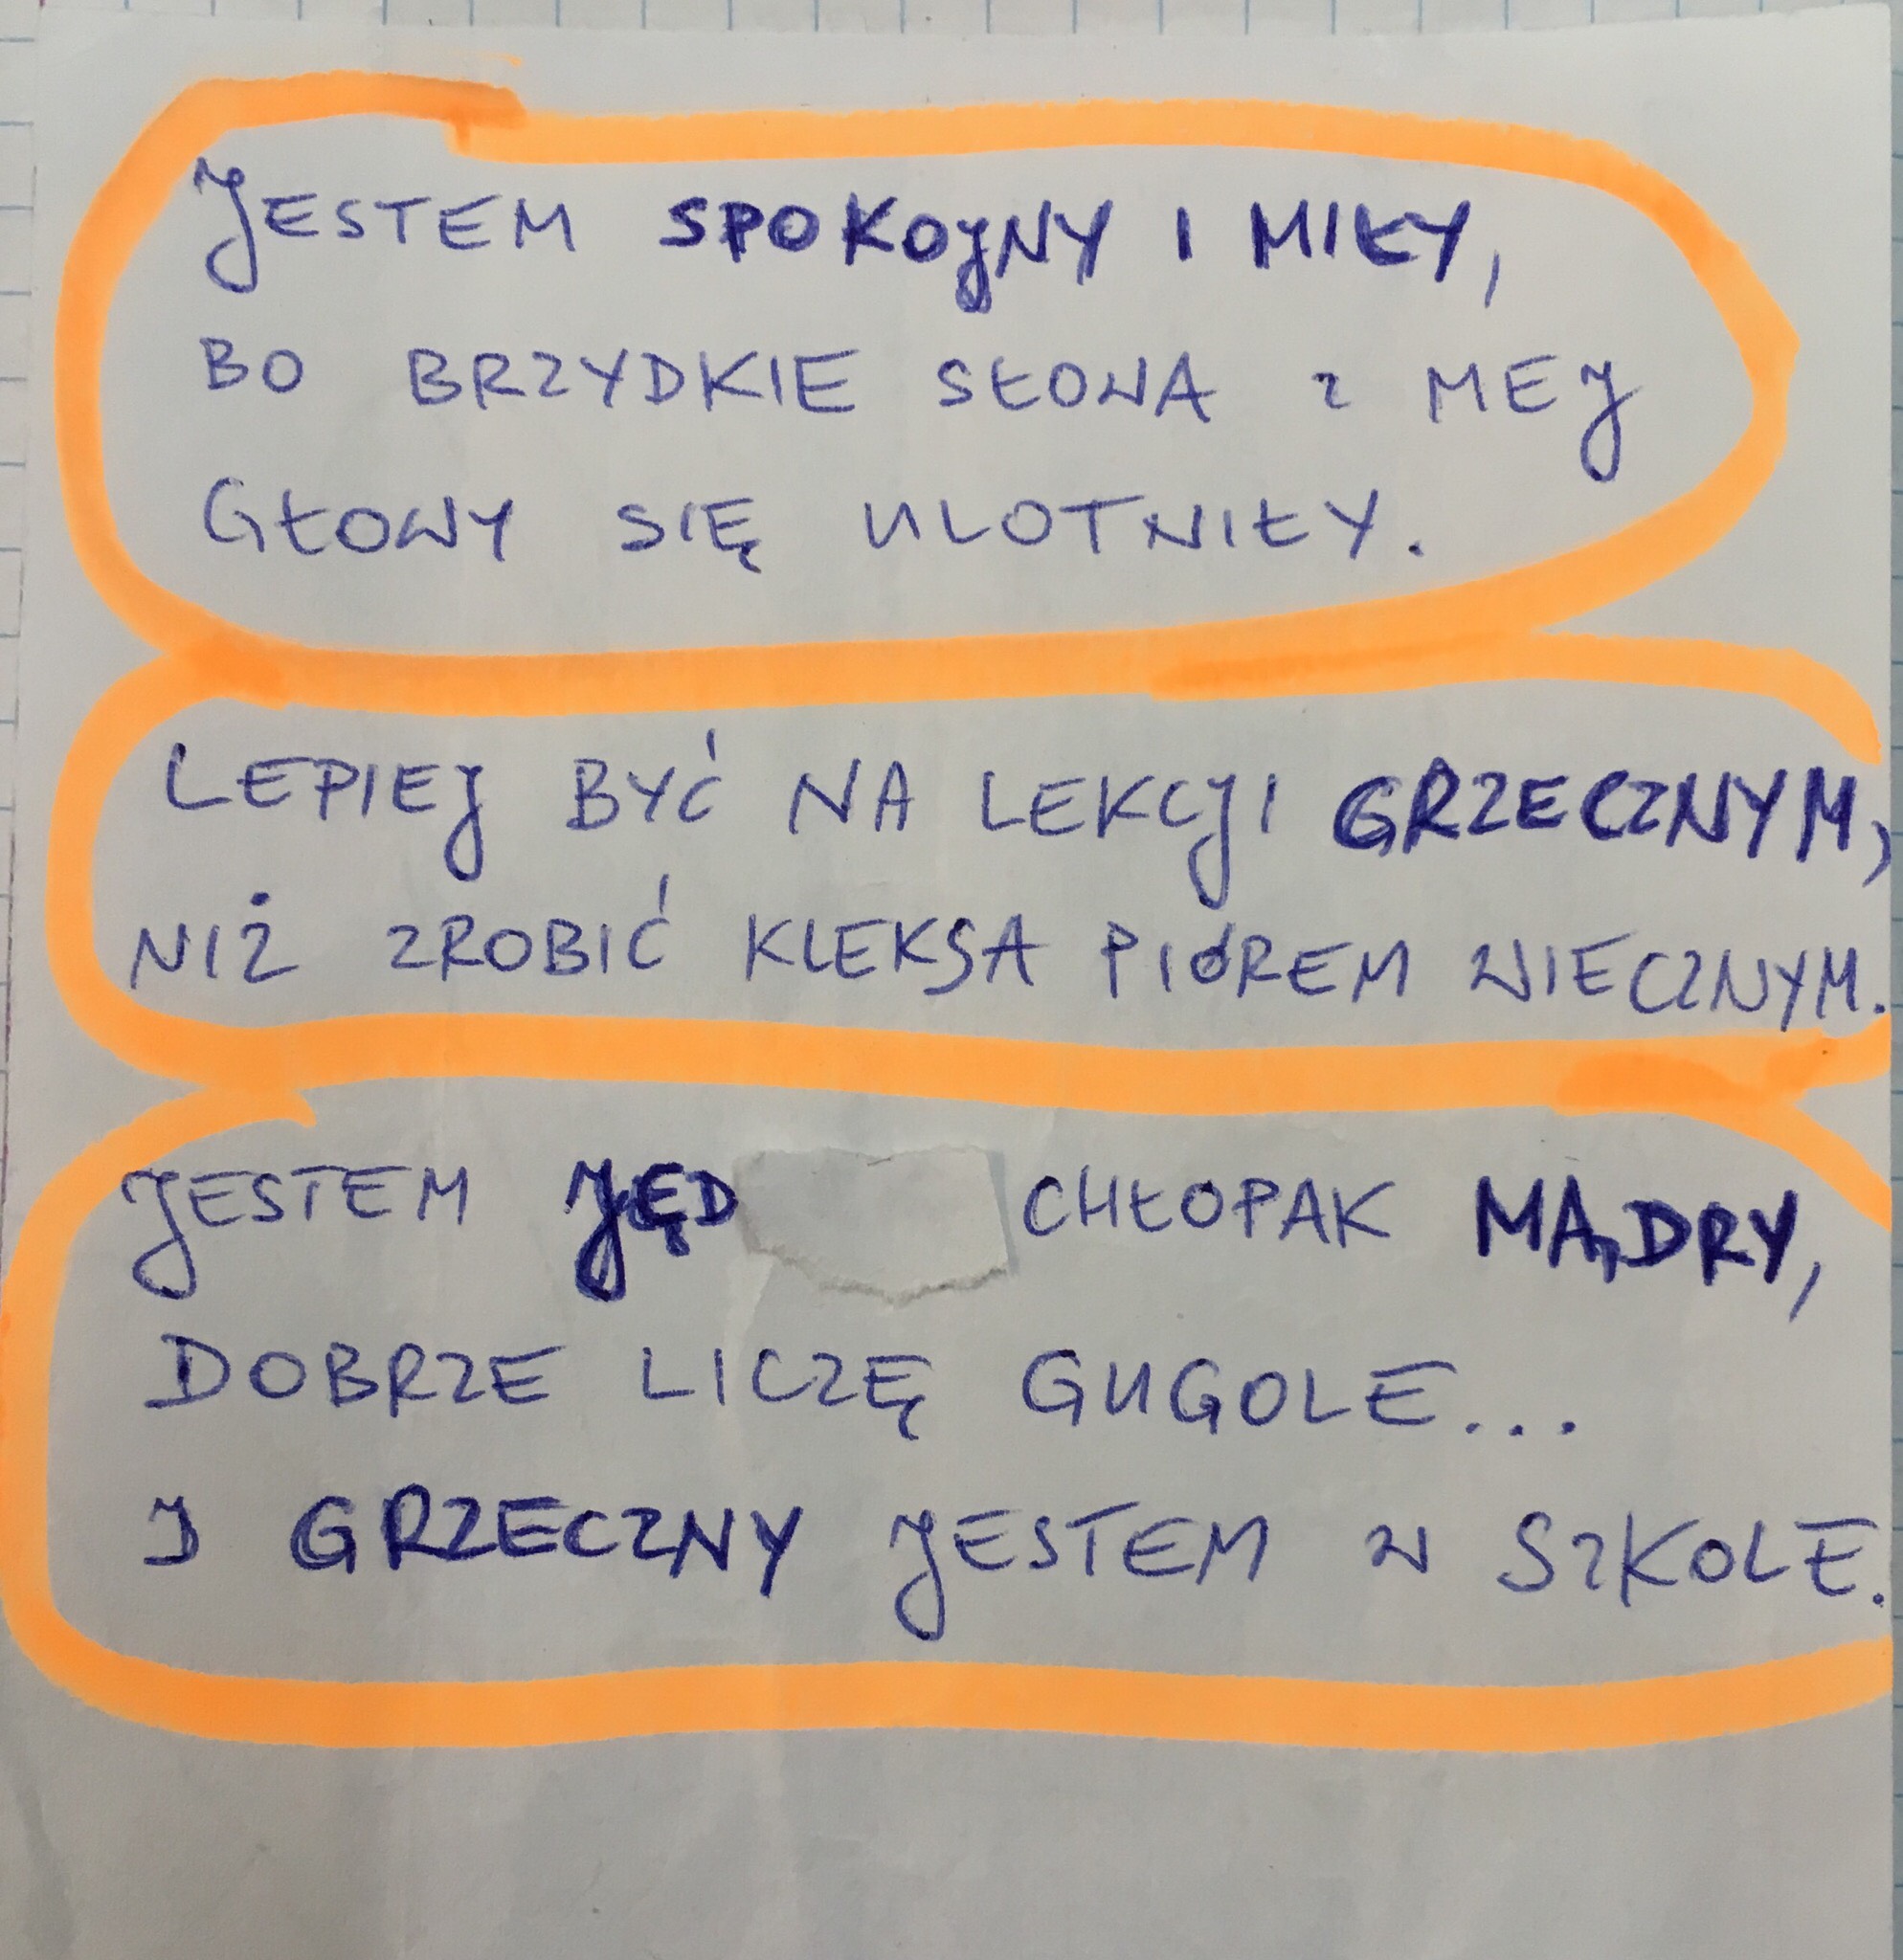 JESTEM SPOKOJNY I MIŁY,
BO BRZYDKIE SŁOWA Z MEJ
GŁOWY SIĘ ULOTNIŁY.
LEPIEJ BYĆ NA LEKCJI GRZECZNYM,
NIŻ ZROBIĆ KLEKSA PIÓREM WIECZNYM.
JESTEM JĘD CHŁOPAK MĄDRY,
DOBRZE LICZĘ GUGOLE...
I GRZECZNY JESTEM W SZKOLE.